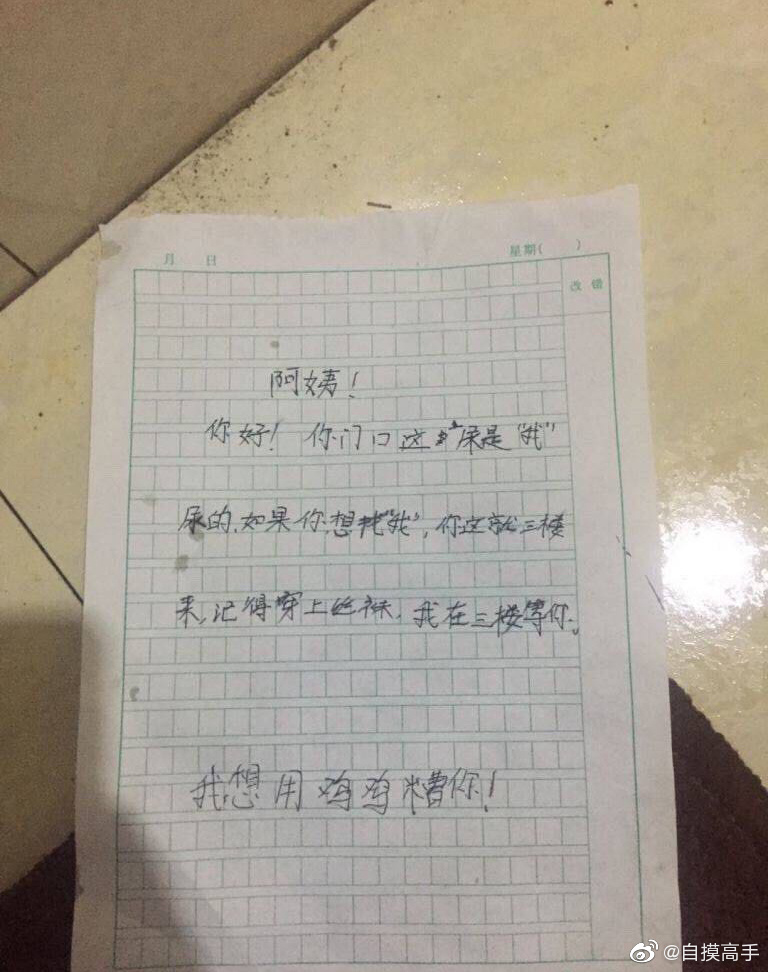 月 日 星期( )
改 错
阿姨!
你好! 你门口这尿是"我"
尿的,如果你想找"我",你这就三楼
来,记得穿上丝袜,我在三楼等你。
我想用鸡鸡糟你!
@自摸高手